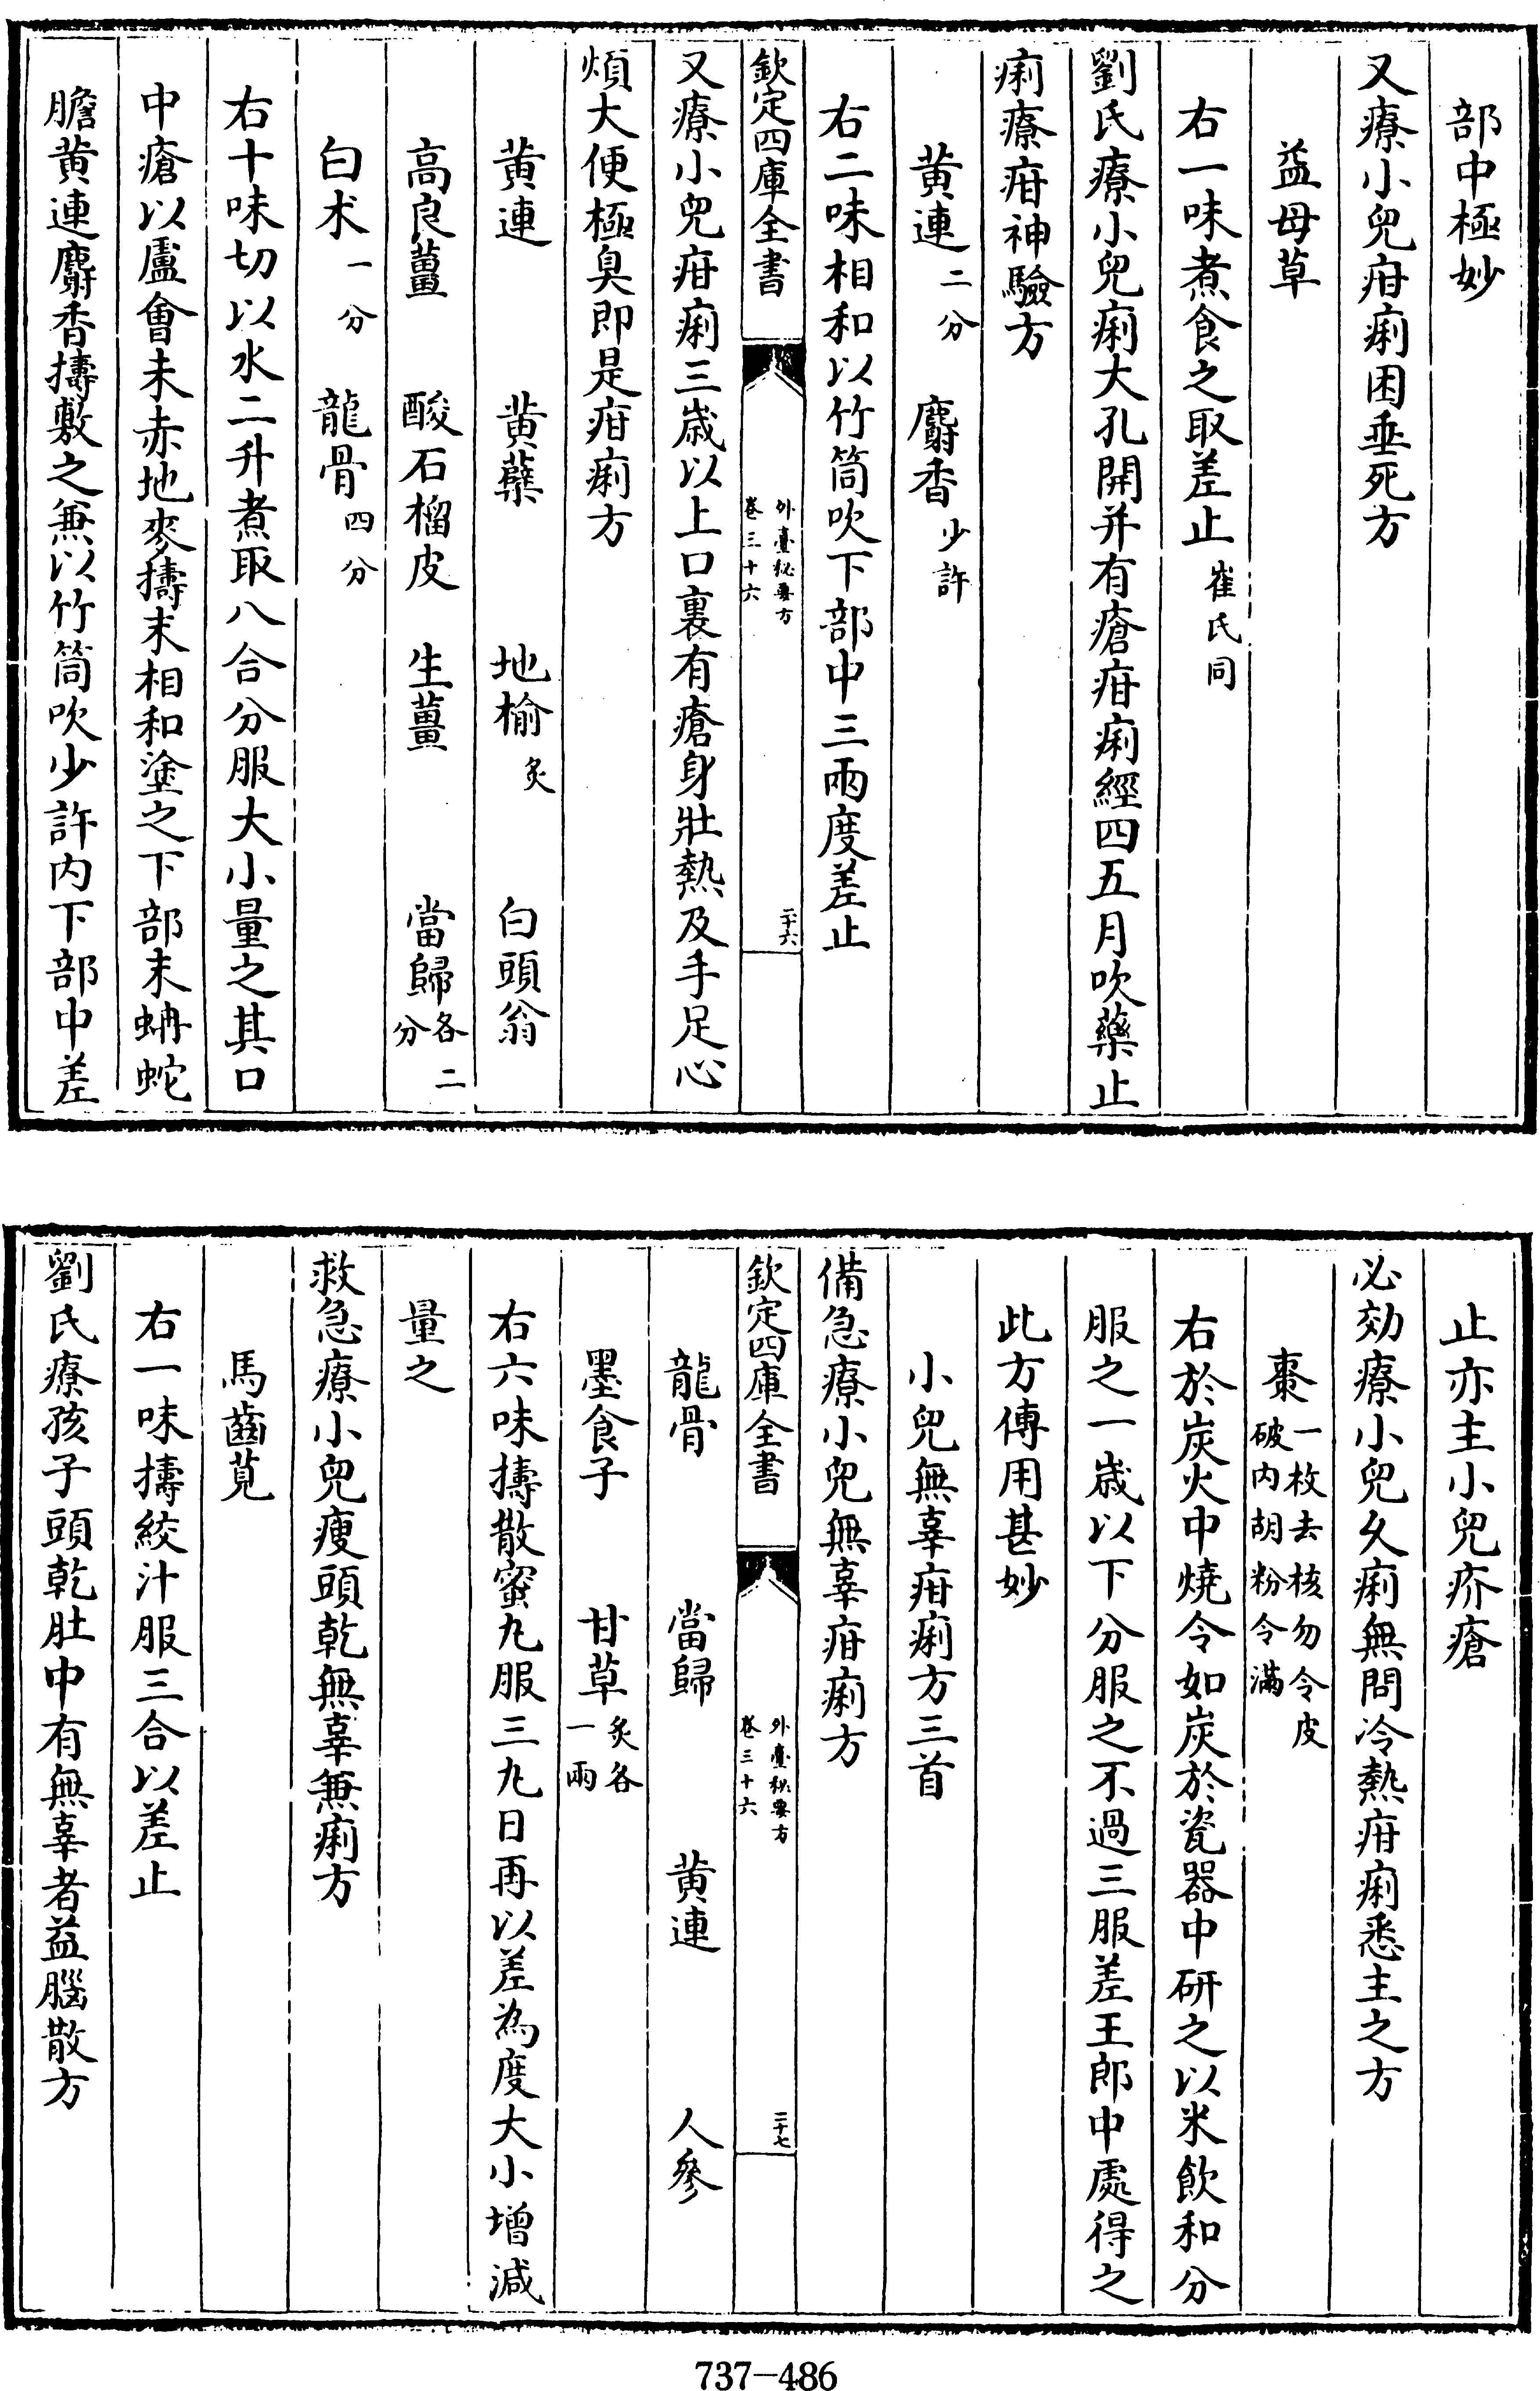 部中極妙
又療小兒疳痢困垂死方
益母草
右一味煮食之取差止崔氏同
劉氏療小兒痢大孔開并有瘡疳痢經四五月吹藥止
痢療疳神驗方
黄連二分 麝香少許
右二味相和以竹筒吹下部中三兩度差止
欽定四庫全書 外臺秘要方 卷三十六 二十六
又療小兒疳痢三歲以上口裏有瘡身壯熱及手足心
煩大便極臭即是疳痢方
黄連 黄蘗 地榆炙 白頭翁
高良薑 酸石榴皮 生薑 當歸各二分
白术一分 龍骨四分
右十味切以水二升煮取八合分服大小量之其口
中瘡以盧會末赤地麥擣末相和塗之下部末蚺蛇
膽黄連麝香擣敷之兼以竹筒吹少許内下部中差
止亦主小兒疥瘡
必効療小兒久痢無問冷熱疳痢悉主之方
棗一枚去核勿令皮破内胡粉令滿
右於炭火中燒令如炭於瓷器中研之以米飲和分
服之一歲以下分服之不過三服差王郎中處得之
此方傳用甚妙
小兒無辜疳痢方三首
備急療小兒無辜疳痢方
欽定四庫全書 外臺秘要方 卷三十六 二十七
龍骨 當歸 黄連 人參
墨食子 甘草炙各一兩
右六味擣散蜜丸服三九日再以差為度大小增減
量之
救急療小兒瘦頭乾無辜兼痢方
馬齒莧
右一味擣絞汁服三合以差止
劉氏療孩子頭乾肚中有無辜者益腦散方
737-486